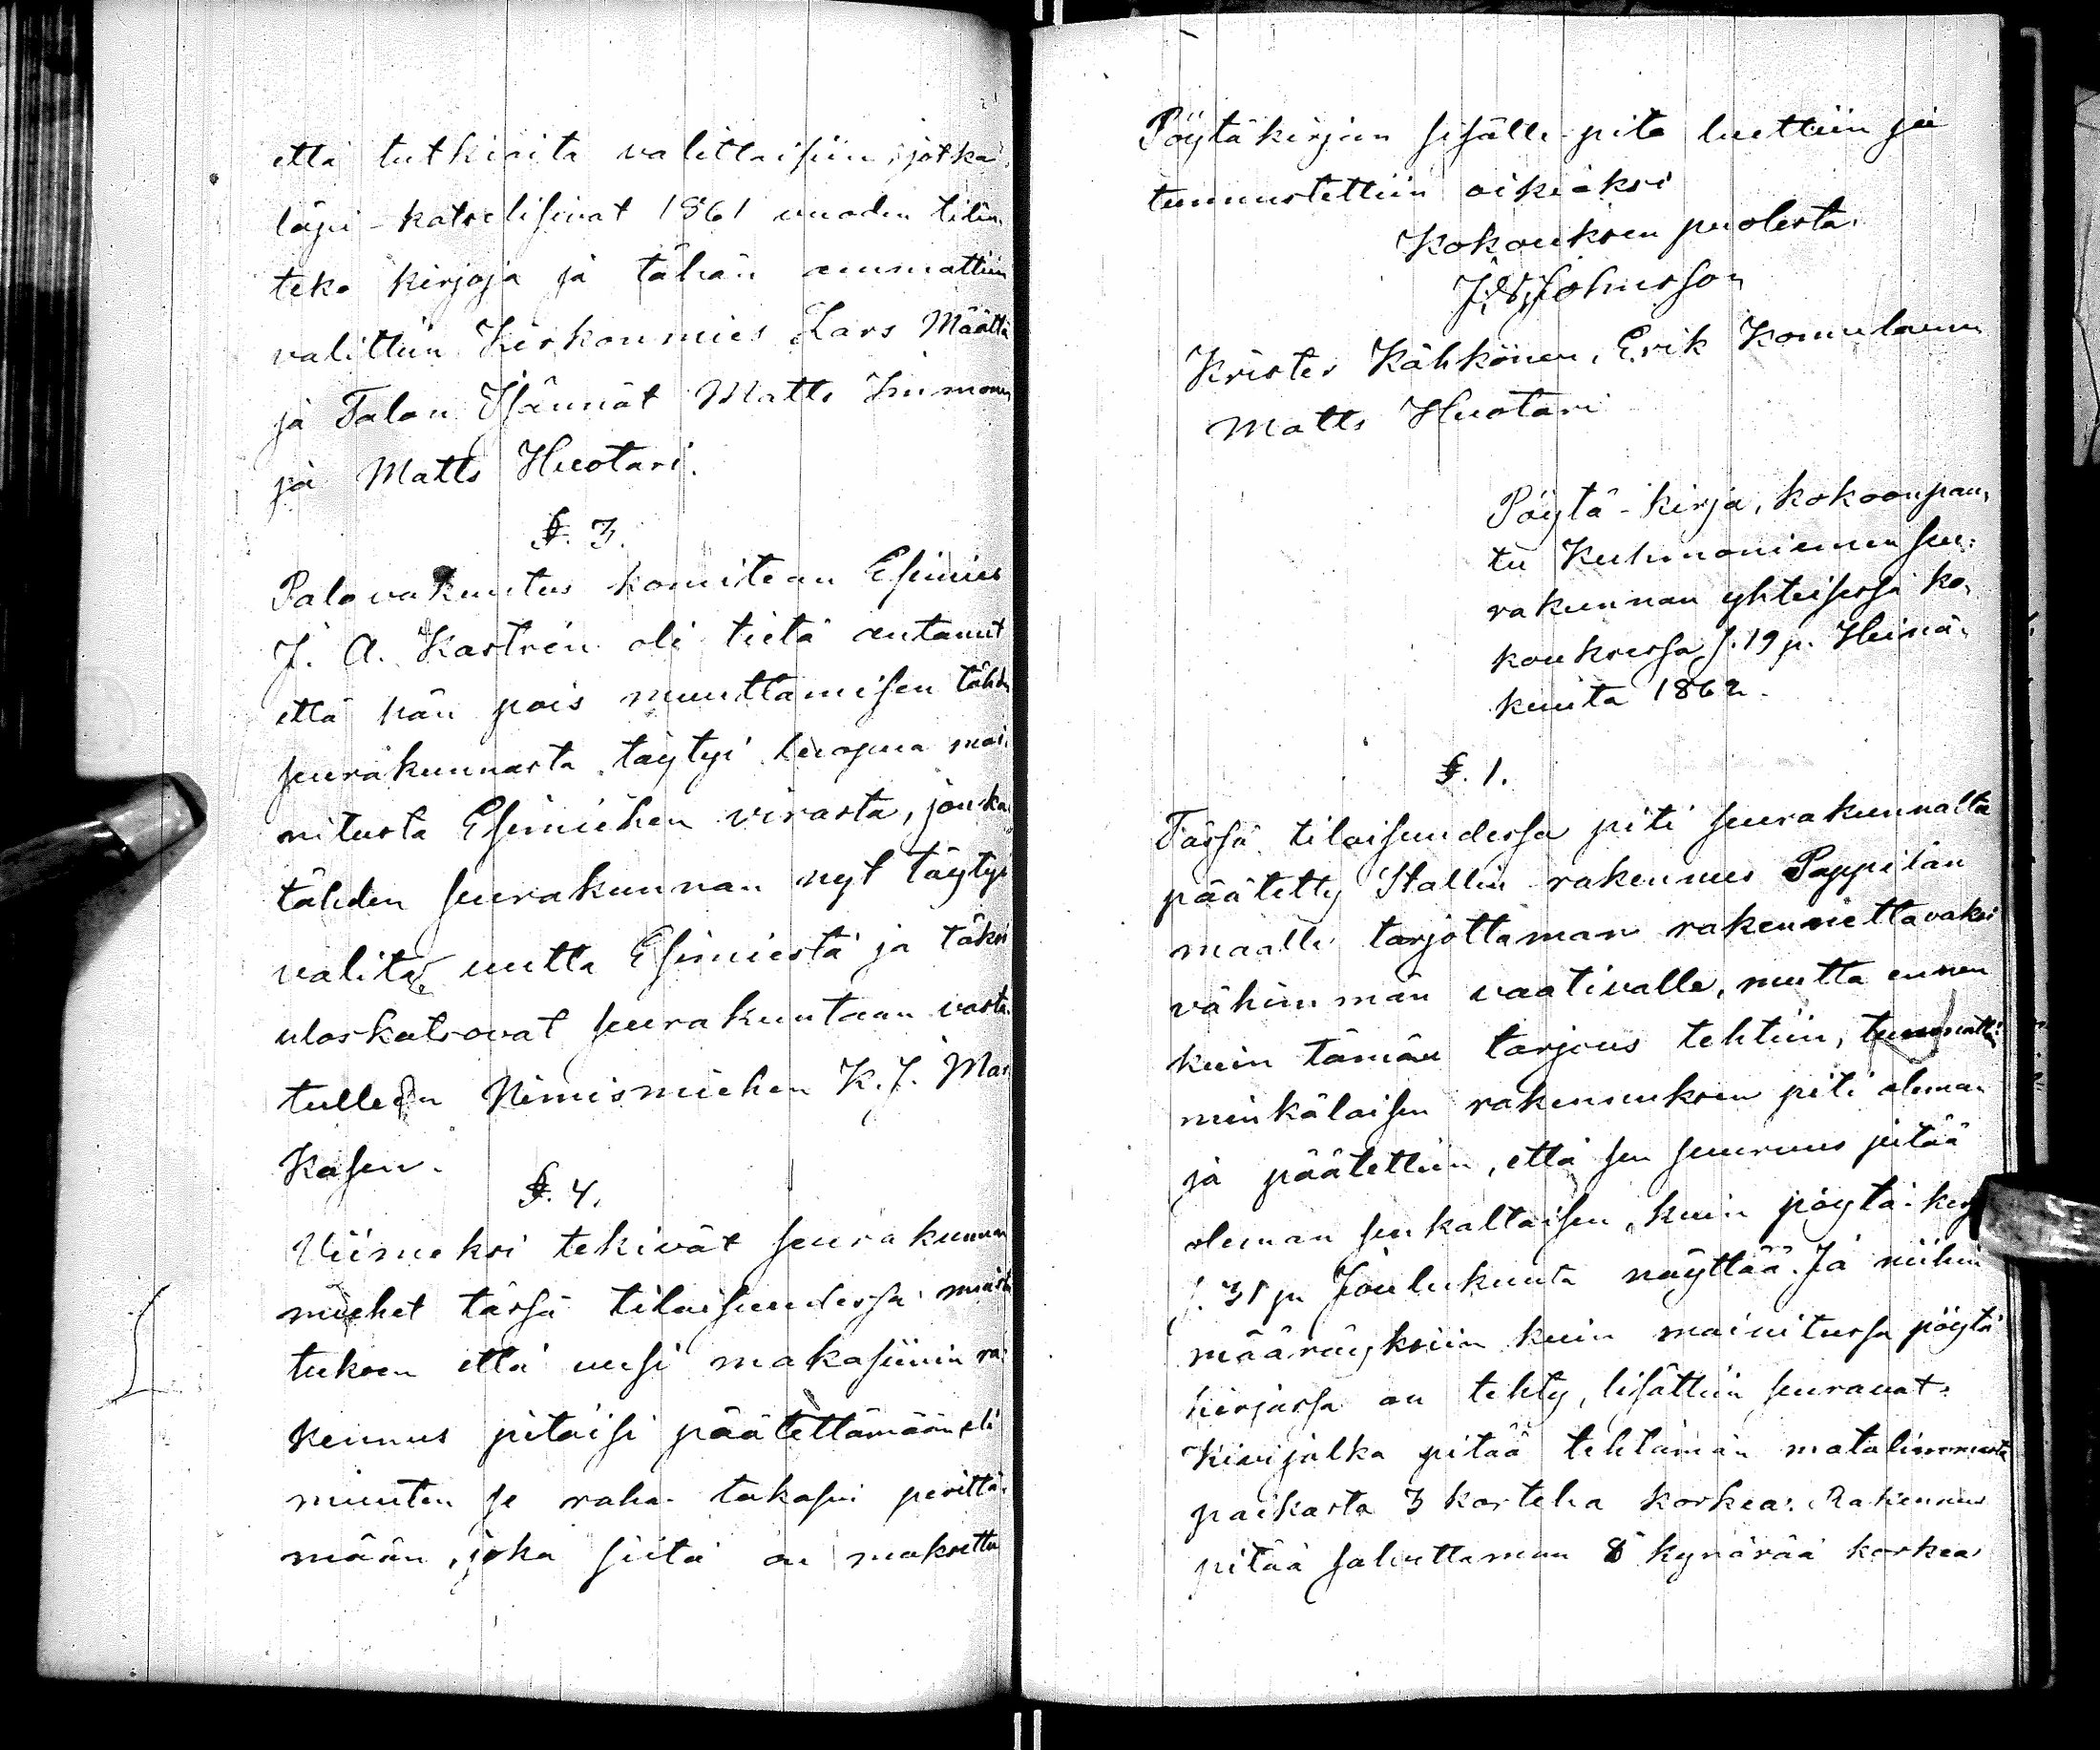 että tutkioita valittaisiin, jotka
läpi-katselisivat 1861 vuoden tilin
teko kirjoja ja tähän ammattiin
valittiin Kirkonmies Lars Määttä
ja Talon Isännät Matts Immonen
ja Matts Huotari.
§. 3.
Palovakuutus komitean Esimies
J. A. Kastrén oli tietä antanut
että hän pois muuttamisen tähden
seurakunnasta täytyi luopua mai
nitusta Esimiehen virasta, jonka
tähden seurakunnan nyt täytyi
valita uutta Esimiestä ja täksi
uloskatsovat seurakuntaan vasta
tulleen Nimismiehen K. J. Mas
Kasen.
§. 4.
Viimeksi tekivät seurakunnan
miehet tässä tilaisuudessa muistu
tuksen että uusi makasiinin ra
kennus pitäisi päätettämään eli
muuten se raha takasin perittä
mään, joka siitä on maksettu
Pöytäkirjan sisälle-pito luettiin ja
tunnustettiin oikiaksi
Kokouksen puolesta:
Johnsson
Krister Kähkönen, Erik Komulainen
Matts Huotari
Pöytä-kirja, kokoonpan,
tu Kuhmoniemen seu,
rakunnan yhteisessä ko,
kouksessa s. 19 p. Heinä,
kuuta 1862.
§. 1.
Tässä tilaisuudessa piti seurakunnalta
päätetty Stallin rakennus Pappilan
maalle tarjottaman rakennettavaksi
vähimmän vaativalle, mutta ennen
kuin tämän tarjous tehtiin,
minkälaisen rakennuksen piti oleman
ja päätettiin, että sen suuruus pitää
oleman senkaltaisen, kuin pöytä-kirja
s. 31 p. Joulukuuta näyttää. Ja niihin
määräyksiin kuin mainitussa pöytä
kirjassa on tehty, lisättiin seuraavat:
Kivijalka pitää tehtämän matalimmasta
paikasta 3 kortelia korkea: Rakennus
pitää salvettaman 8 kynärää korkea